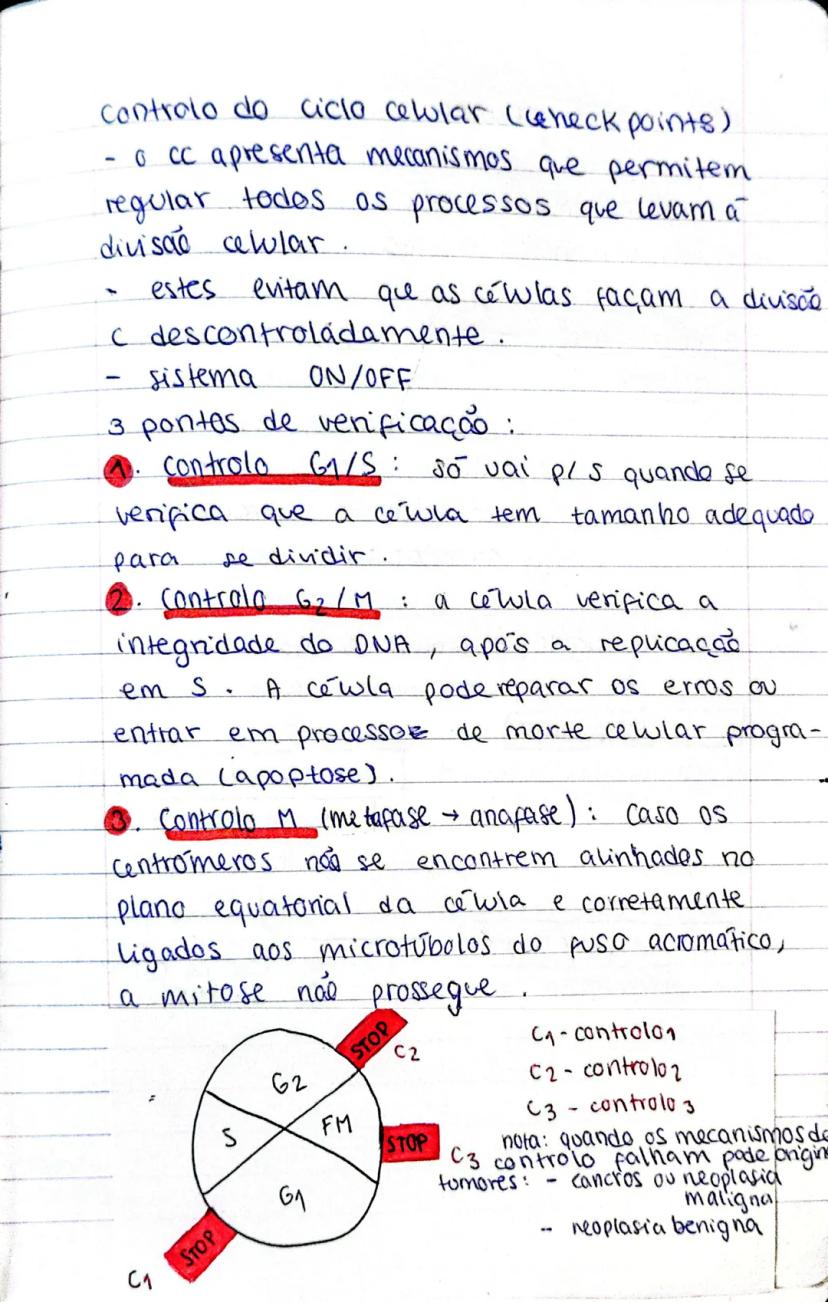 controlo do ciclo celular (checkpoints)
- o cc apresenta mecanismos que permitem
regular todos os processos que levam à
divisão celular.
- estes evitam que as células façam a divisão
c descontroládamente.
- sistema ON/OFF
3 pontos de verificação:
1. controlo G1/S: só vai p/ s quando se
verifica que a célula tem tamanho adequado
para se dividir.
2. controlo G2/M: a célula verifica a
integridade do DNA, após a replicação
em S. A célula pode reparar os erros ou
entrar em processo de morte celular progra-
mada (apoptose).
3. Controlo M (metafase → anafase): caso os
centrómeros não se encontrem alinhados no
plano equatorial da célula e corretamente
ligados aos microtúbolos do fuso acromático,
a mitose não prossegue.
STOP
C2
G2
S
FM
STOP
C3
G1
STOP
C1
C1 - controlo1
C2 - controlo2
C3 - controlo3
nota: quando os mecanismos de
controlo falham pode origin
tumores: - cancros ou neoplasia
maligna
- neoplasia benigna